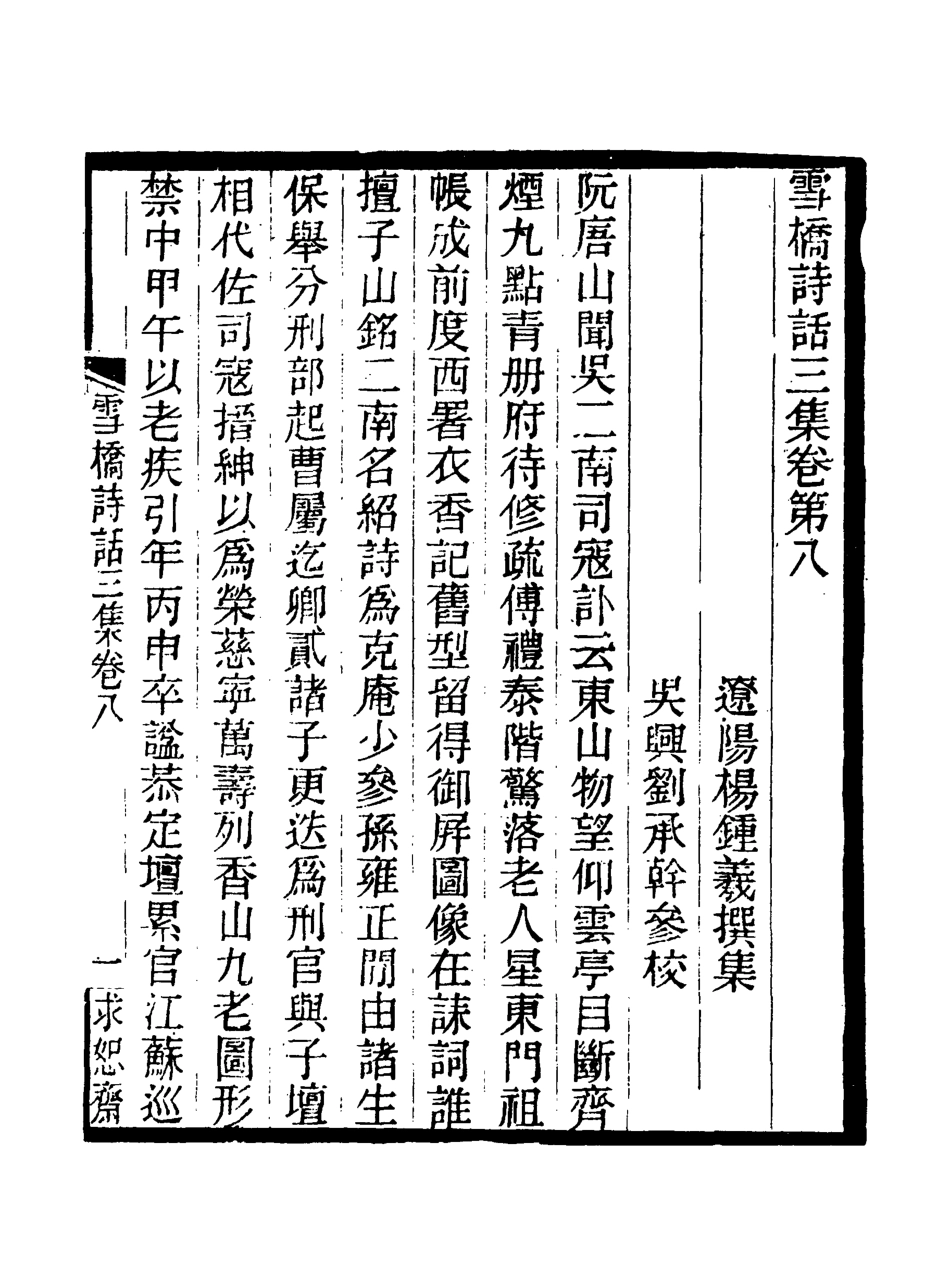 雪橋詩話三集卷第八
遼陽楊鍾羲撰集
吳興劉承幹參校
阮唐山聞吳二南司寇訃云東山物望仰雲亭目斷齊
煙九點青册府待修疏傅禮泰階驚落老人星東門祖
帳成前度西署衣香記舊型留得御屛圖像在誄詞誰
擅子山銘二南名紹詩爲克庵少參孫雍正閒由諸生
保舉分刑部起曹屬迄卿貳諸子更迭爲刑官與子壇
相代佐司寇搢紳以爲榮慈寧萬壽列香山九老圖形
禁中甲午以老疾引年丙申卒謚恭定壇累官江蘇巡
雪橋詩話三集卷八
一
求恕齋